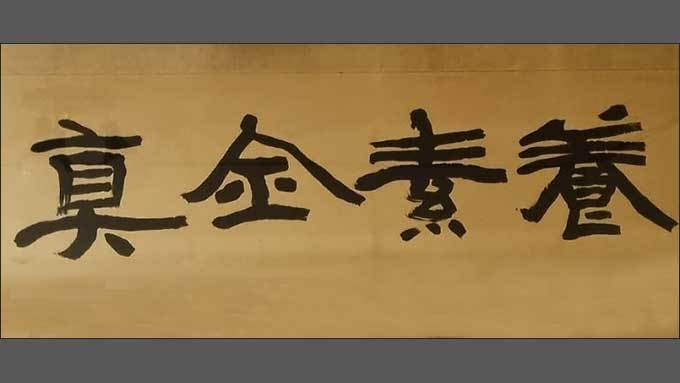 養素全真